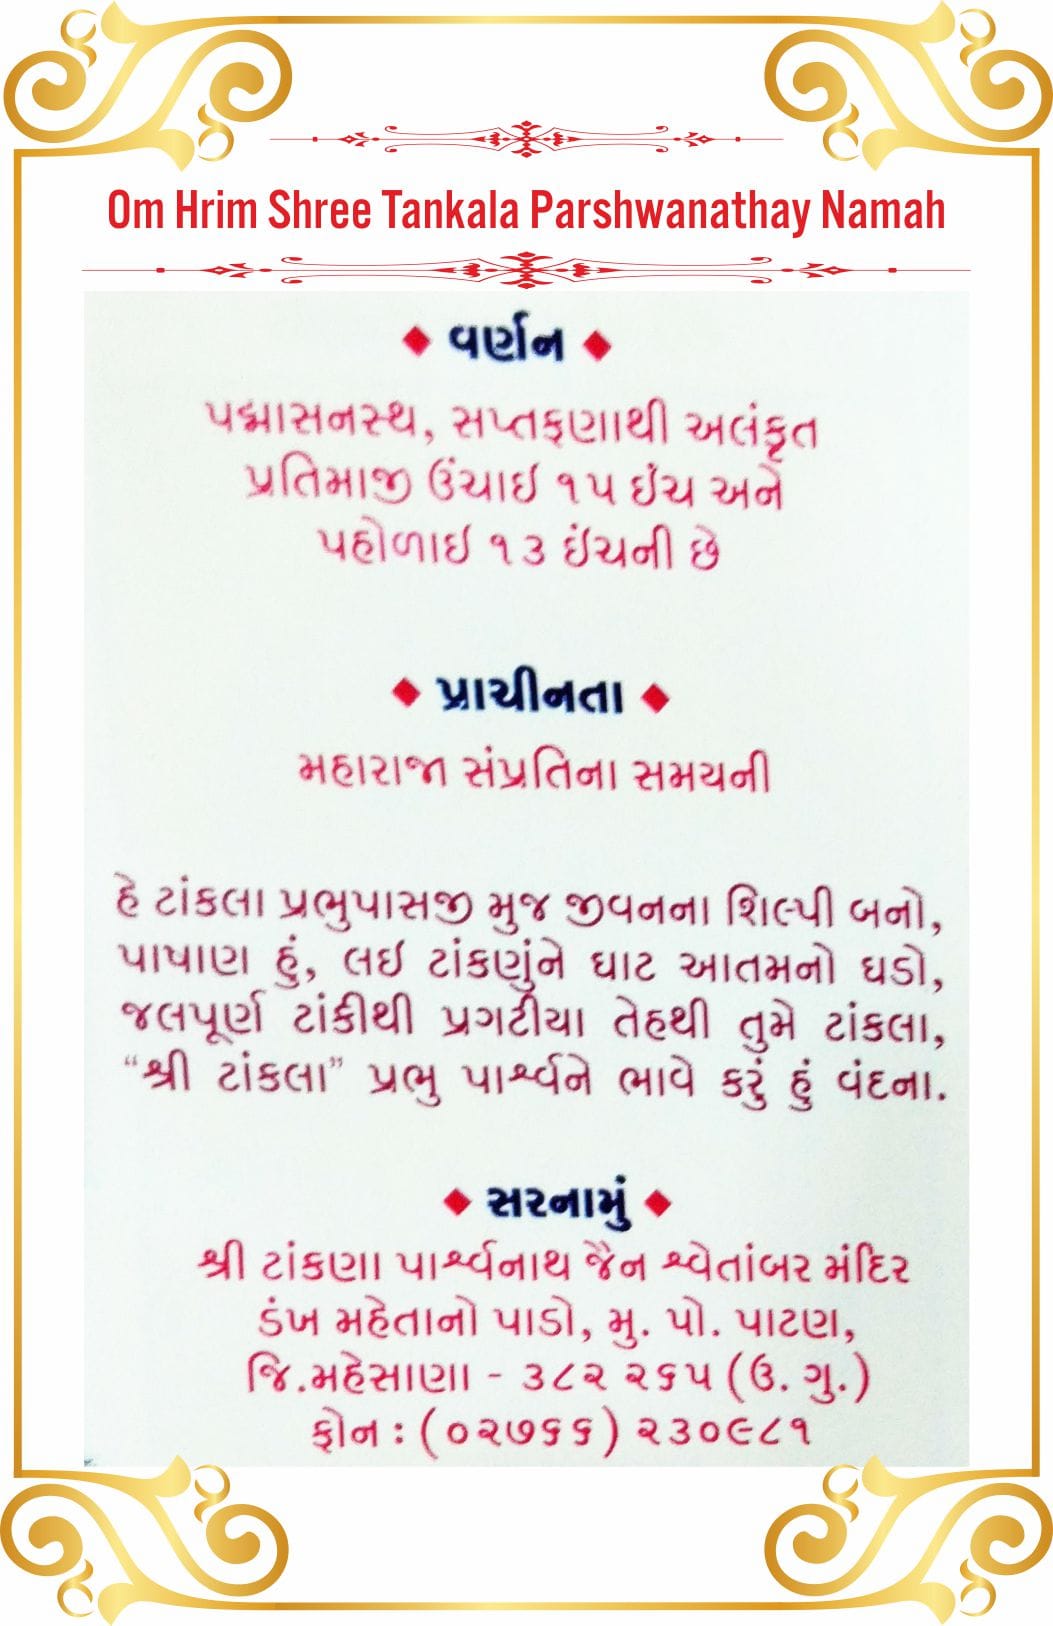 Om Hrim Shree Tankala Parshwanathay Namah
વર્ણન
પદ્માસનસ્થ, સપ્તફણાથી અલંકૃત
પ્રતિમાજી ઉંચાઇ ૧૫ ઇંચ અને
પહોળાઇ ૧૩ ઇંચની છે
પ્રાચીનતા
મહારાજા સંપ્રતિના સમયની
હે ટાંકલા પ્રભુપાસજી મુજ જીવનના શિલ્પી બનો,
પાષાણ હું, લઇ ટાંકણુંને ઘાટ આતમનો ઘડો,
જલપૂર્ણ ટાંકીથી પ્રગટીયા તેહથી તુમે ટાંકલા,
“શ્રી ટાંકલા” પ્રભુ પાર્શ્વને ભાવે કરું હું વંદના.
સરનામું
શ્રી ટાંકણા પાર્શ્વનાથ જૈન શ્વેતાંબર મંદિર
ડંખ મહેતાનો પાડો, મુ. પો. પાટણ,
જિ.મહેસાણા - ૩૮૨ ૨૬૫ (ઉ. ગુ.)
ફોન : (૦૨૭૬૬) ૨૩૦૯૮૧